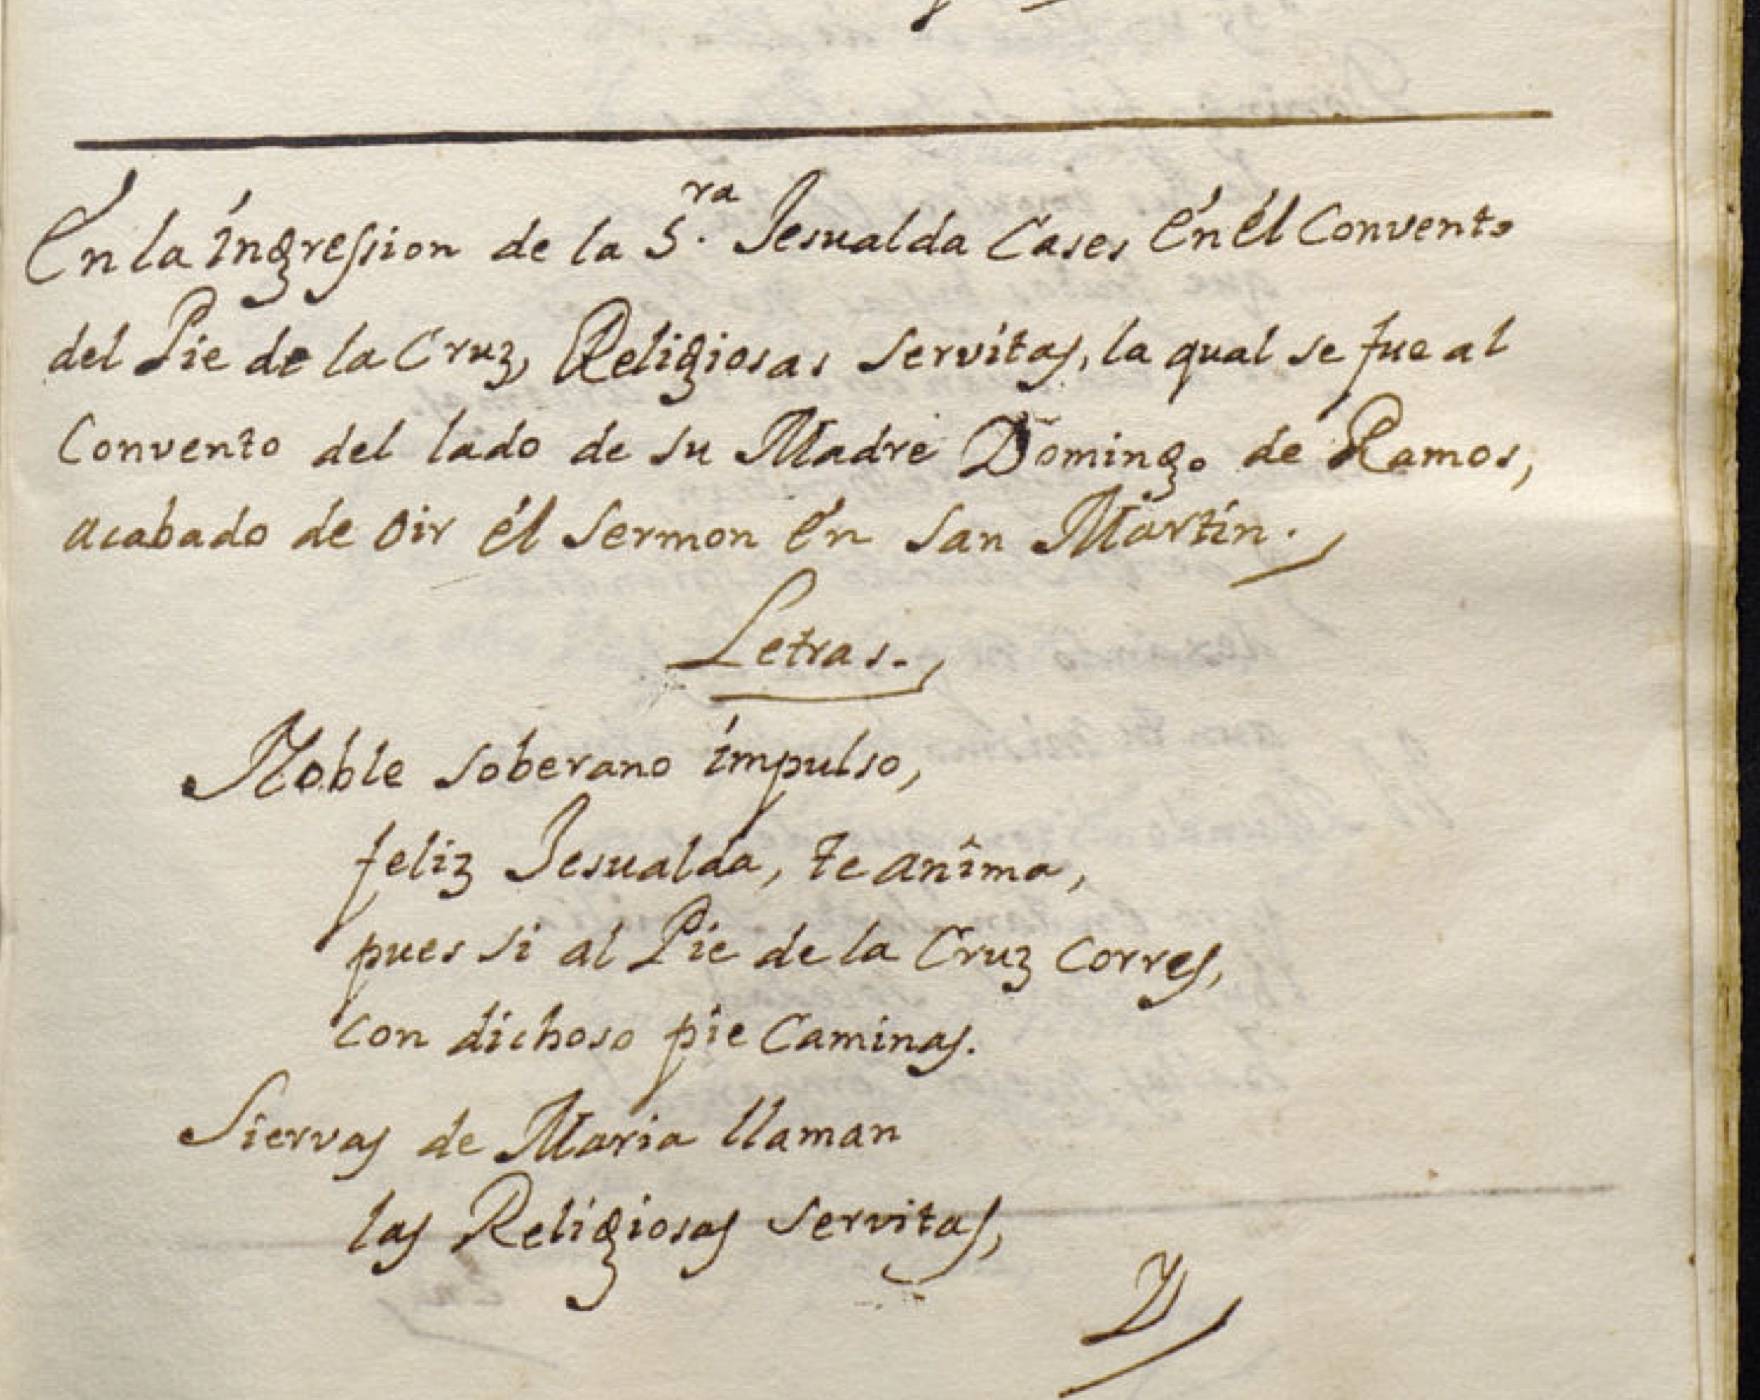 En la ingression de la S.ra Jesualda Cases én él Convento
del Pie de la Cruz, Religiosas Servitas, la qual se fue al
Convento del lado de su Madre Domingo de Ramos,
acabado de oir él Sermon én San Martin.
Letras.
Noble soberano impulso,
feliz Jesualda, te anîma,
pues si al Pie de la Cruz Corres,
con dichoso pie Caminas.
Siervas de Maria llaman
las Religiosas Servitas,
Y